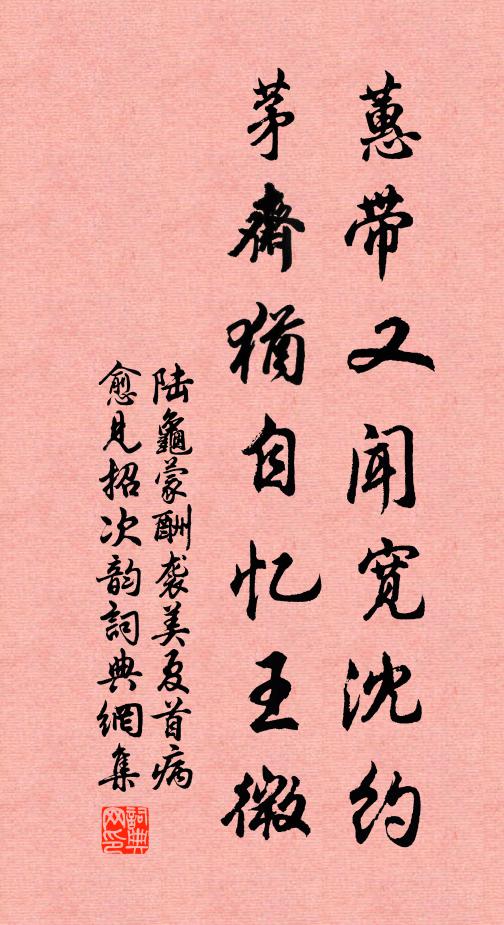 蕙带又闻宽沈约
茅斋犹自忆王微
陆龟蒙酬袭美夏首病
愈见招次韵词典网集
词典网印